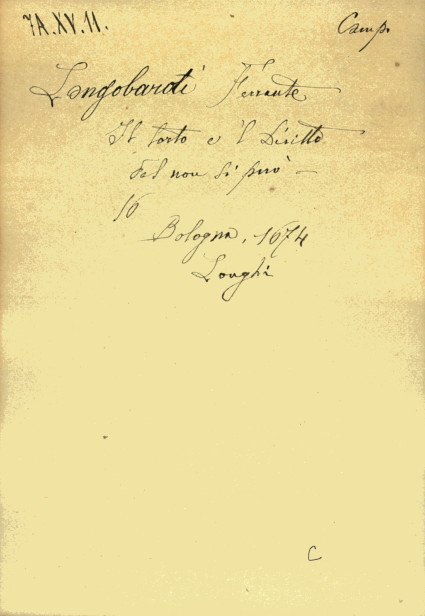 7A.XV.11.
Camp.
Longobardi Ferrante
Il torto e 'l Diritto
del non si può —
16
Bologna, 1674
Longhi
C